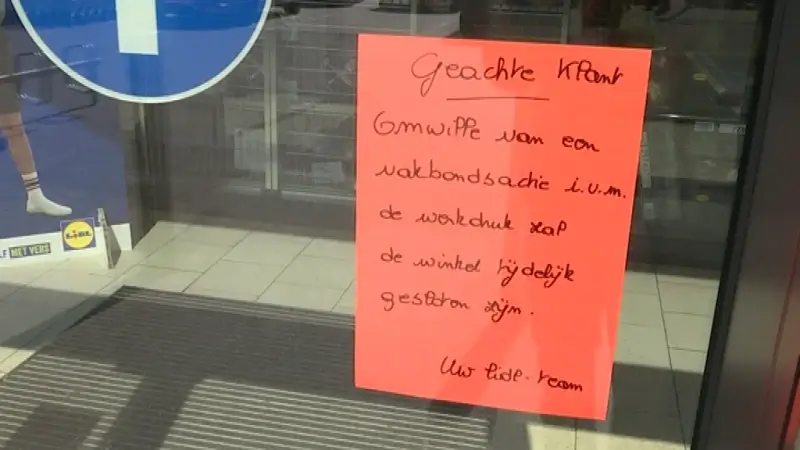 Geachte Klant
Omwille van een
vakbondsactie i.v.m.
de werkdruk zal
de winkel tijdelijk
gesloten zijn.
Uw Lidl-team
LIDL
HET VERS